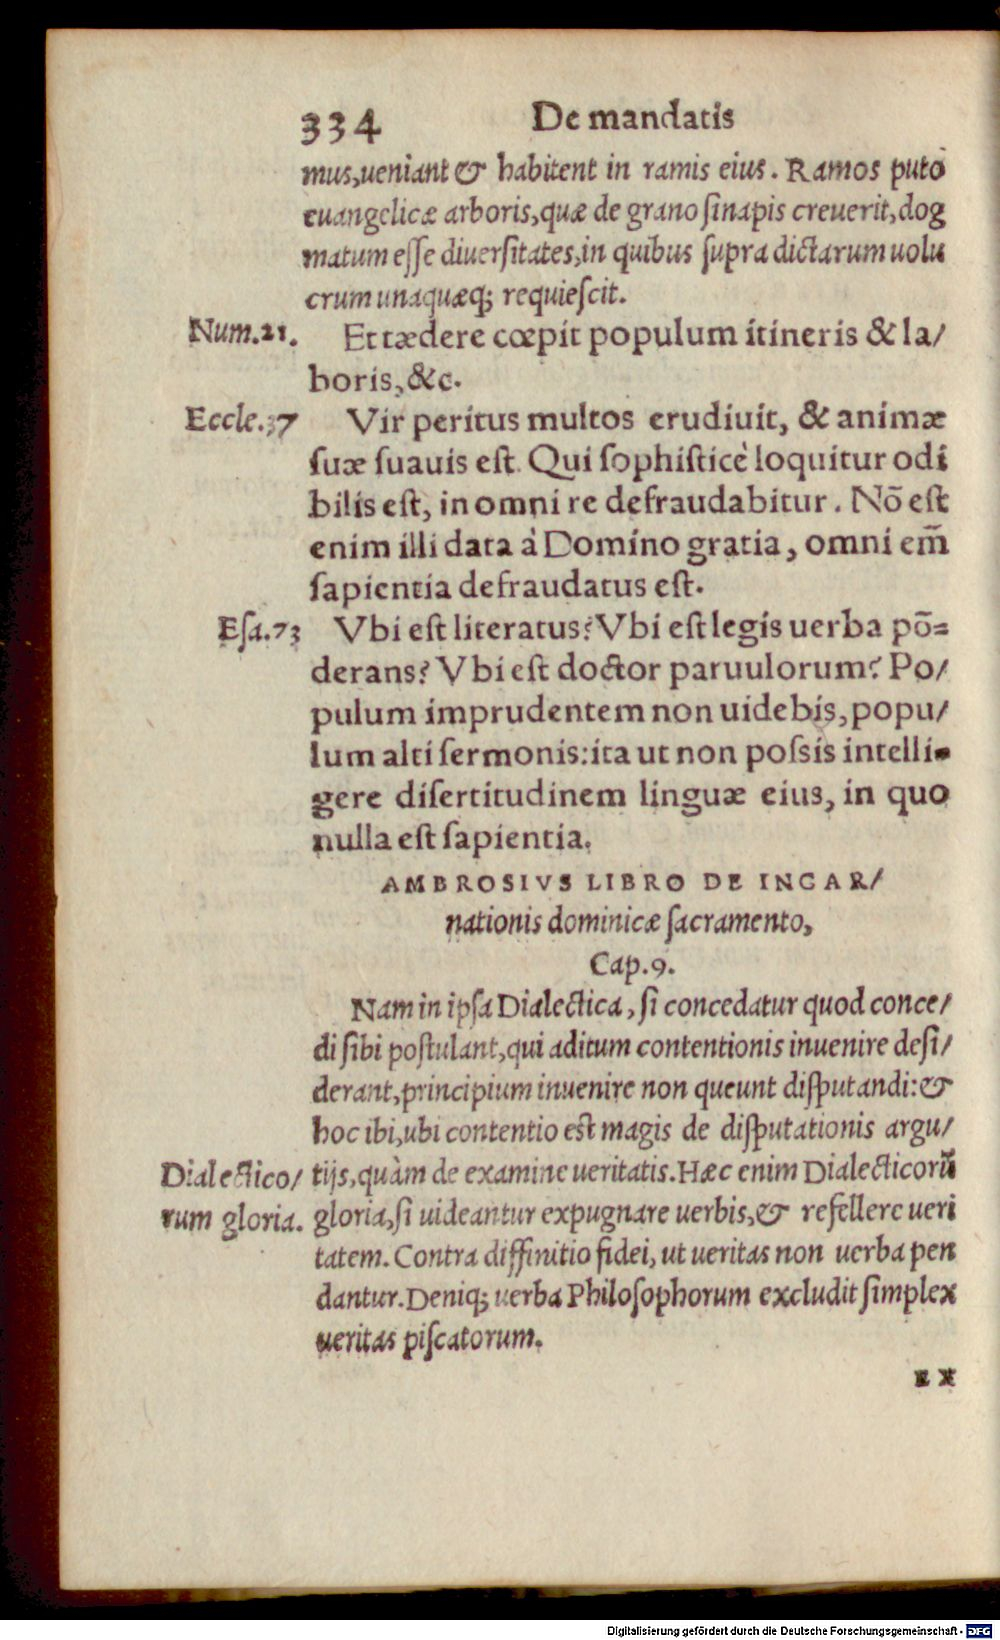 334 De mandatis
mus,ueniant & habitent in ramis eius. Ramos puto
euangelicæ arboris,quæ de grano ſinapis creuerit,dog
matum eſſe diuerſitates,in quibus ſupra dictarum uolu
crum unaquæq; requieſcit.
Num.21. Et tædere cœpit populum itineris & la/
boris, &c.
Eccle.37 Vir peritus multos erudiuit, & animæ
ſuæ ſuauis eſt. Qui ſophiſticè loquitur odi
bilis eſt, in omni re defraudabitur. Nō eſt
enim illi data à Domino gratia, omni em̄
ſapientia defraudatus eſt.
Eſa.73 Vbi eſt literatus? Vbi eſt legis uerba pō=
derans? Vbi eſt doctor paruulorum? Po/
pulum imprudentem non uidebis, popu/
lum alti ſermonis: ita ut non poſsis intelli-
gere diſertitudinem linguæ eius, in quo
nulla eſt ſapientia.
AMBROSIVS LIBRO DE INCAR/
nationis dominicæ ſacramento,
Cap.9.
Nam in ipſa Dialectica, ſi concedatur quod conce/
di ſibi poſtulant,qui aditum contentionis inuenire deſi/
derant,principium inuenire non queunt diſputandi:&
hoc ibi,ubi contentio est magis de diſputationis argu/
Dialectico/ tijs,quàm de examine ueritatis. Hæc enim Dialecticorū
rum gloria. gloria,ſi uideantur expugnare uerbis,& refellere ueri
tatem. Contra diffinitio fidei, ut ueritas non uerba pen
dantur. Deniq; uerba Philoſophorum excludit ſimplex
ueritas piſcatorum.
EX
Digitalisierung gefördert durch die Deutsche Forschungsgemeinschaft - DFG